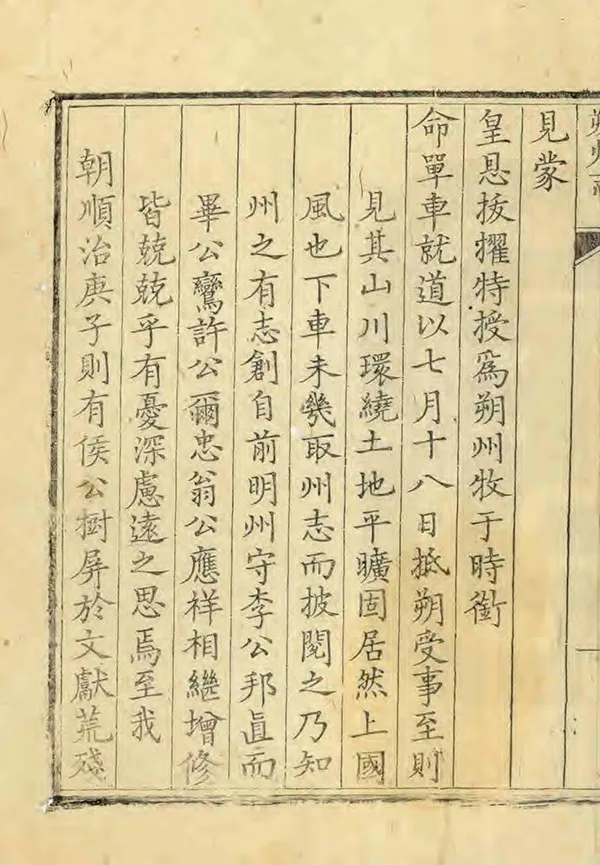 朔州志
見蒙
皇恩拔擢特授爲朔州牧于時銜
命單車就道以七月十八日抵朔受事至則
見其山川環繞土地平曠固居然上國
風也下車未幾取州志而披閱之乃知
州之有志創自前明州守李公邦直而
畢公鸞許公爾忠翁公應祥相繼增修
皆兢兢乎有憂深慮遠之思焉至我
朝順治庚子則有侯公樹屏於文獻荒殘